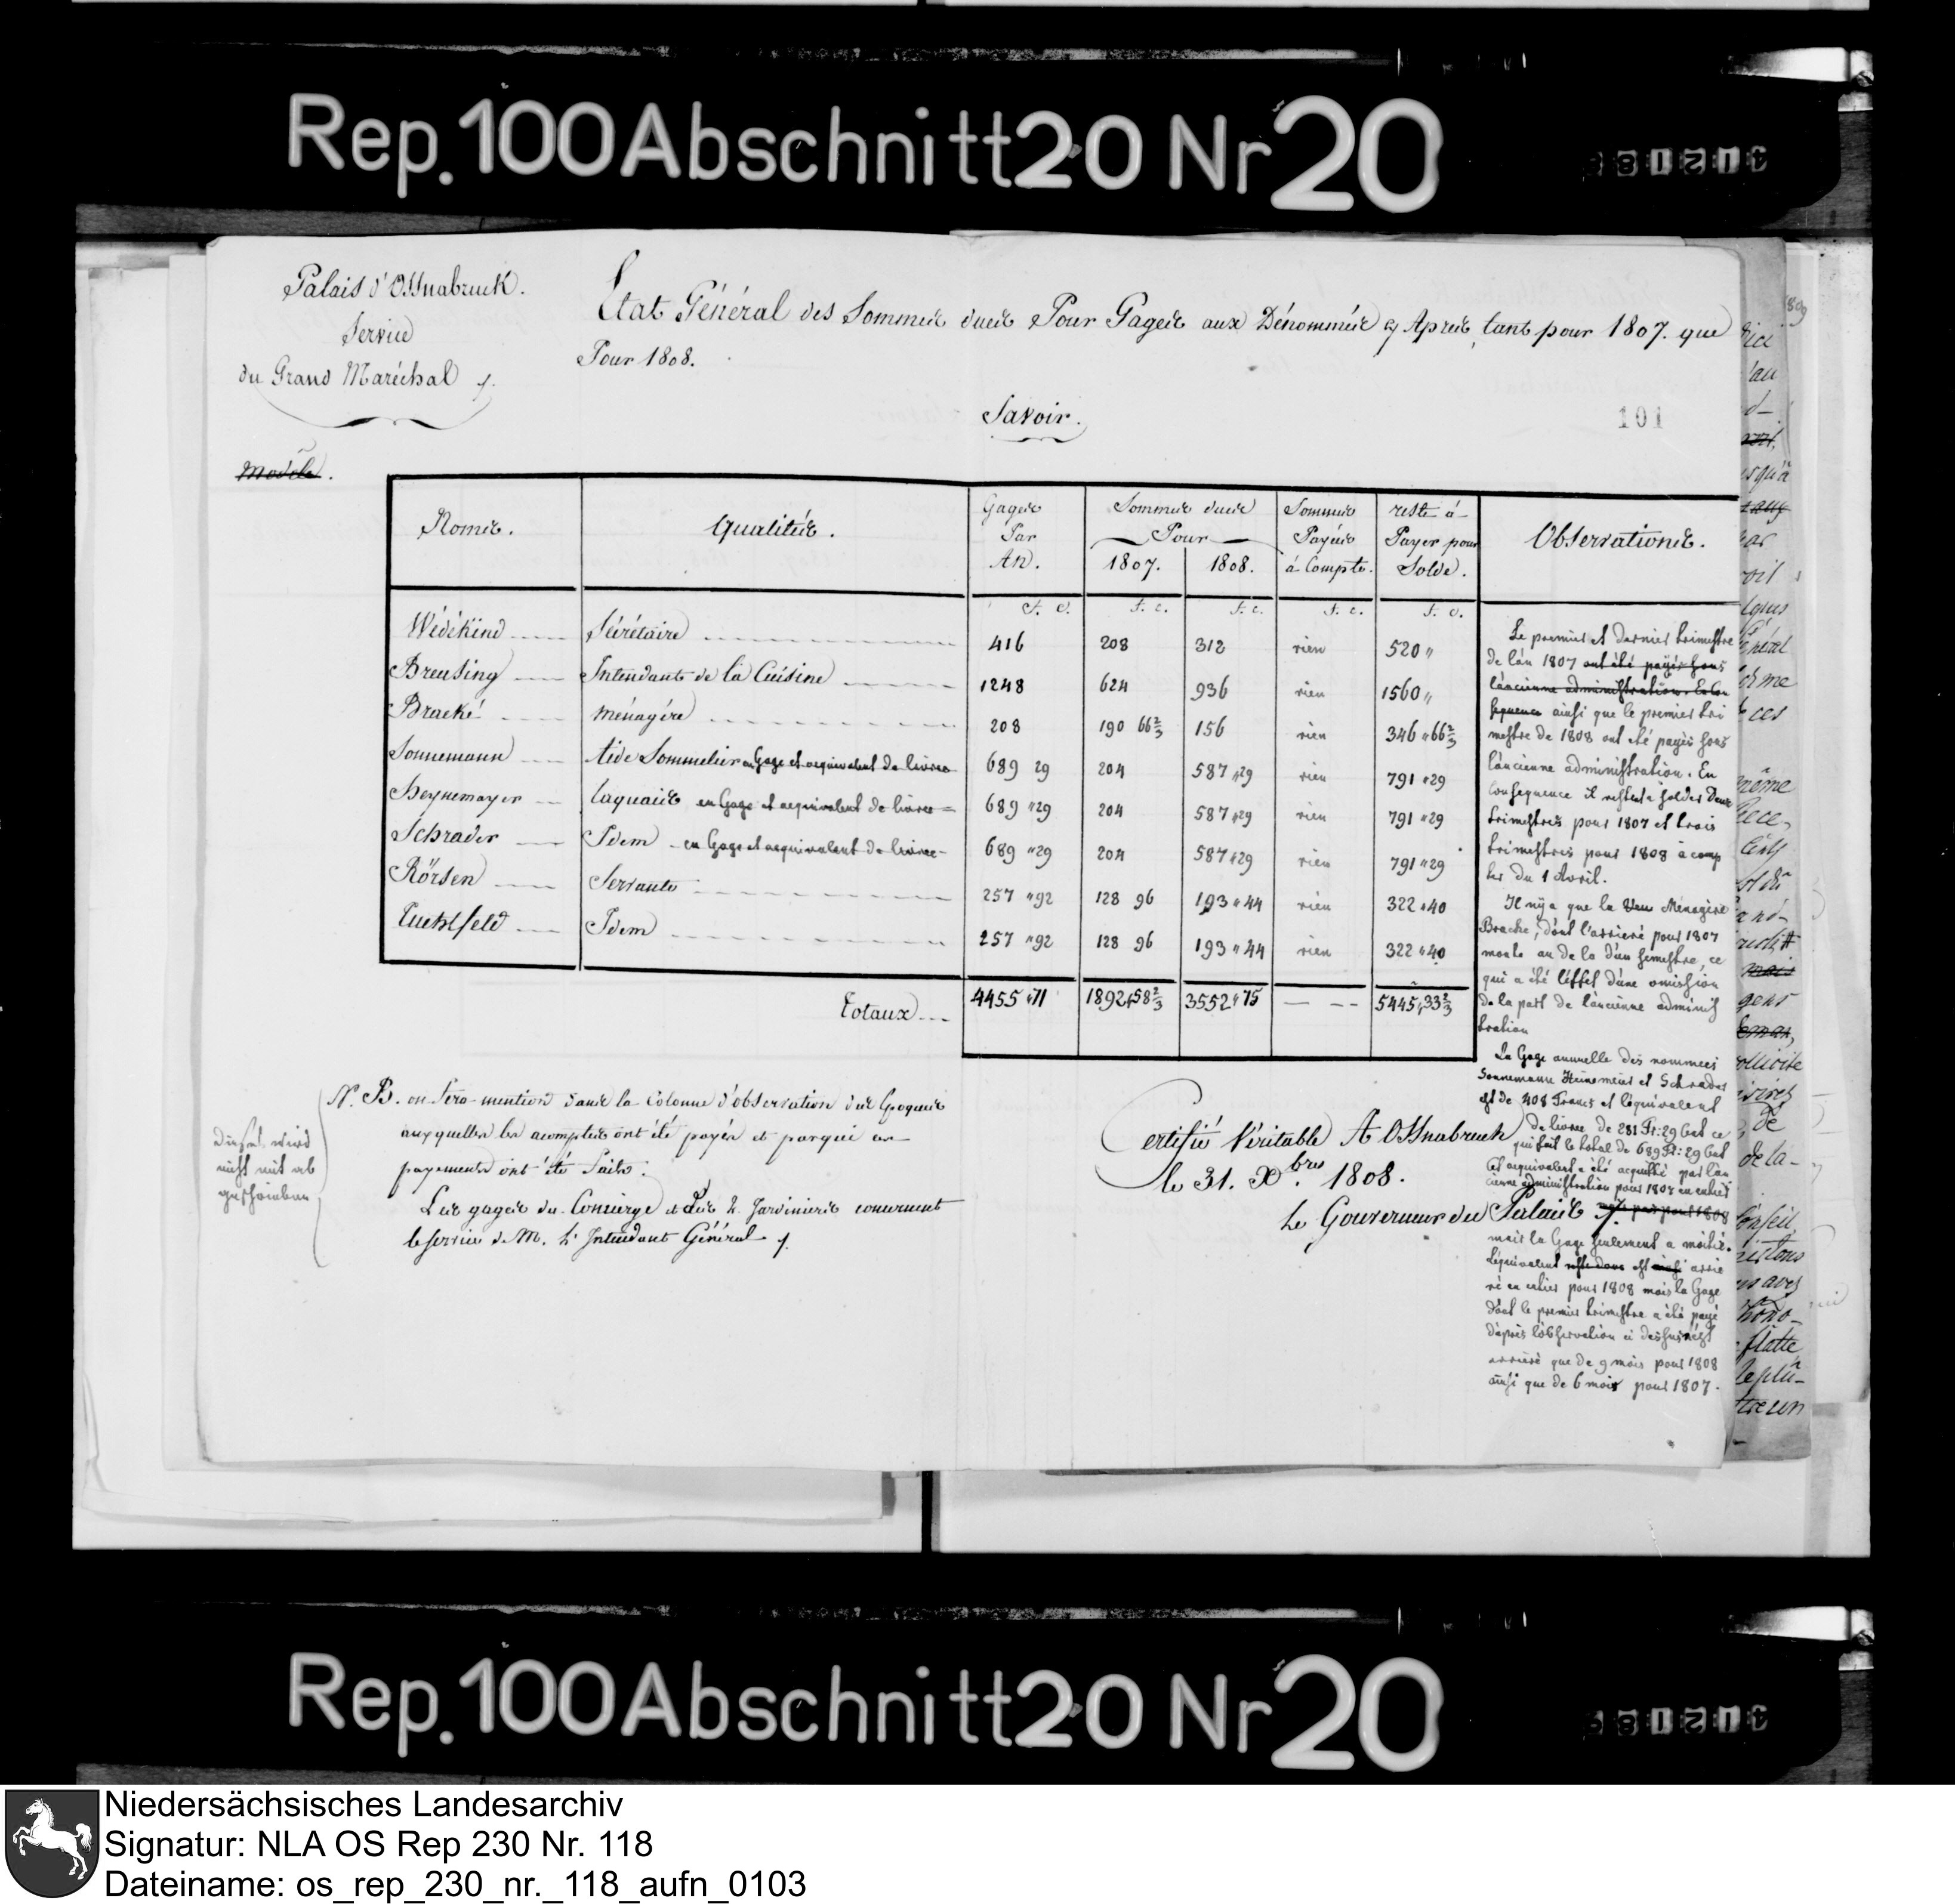 Rep. 100 Abschnitt 20 Nr 20
Palais d'Ossnabruck.
Service
du Grand Maréchal
Etat Général des Sommes dues Pour Gages aux Dénommés cy Après, tant pour 1807. que
Pour 1808.
Savoir.
101
Modèle.
Noms. Qualités. Gages Par An. Sommes dues Pour 1807. 1808. Sommes Payées à Compte. reste à Payer pour Solde. Observations.
f. c. f. c. f. c. f. c. f. c.
Wédékind Sécrétaire 416 208 312 rien 520 "
Breusing Intendante de la Cuisine 1248 624 936 rien 1560 "
Bracké ménagére 208 190 66 2/3 156 rien 346 " 66 2/3
Sonnemann Aide Sommelier en Gage et aequivalent de livree 689 29 204 587 " 29 rien 791 " 29
Heynemayer laquais en Gage et aequivalent de livree 689 " 29 204 587 " 29 rien 791 " 29
Schrader Idem en Gage et aequivalent de livree 689 " 29 204 587 " 29 rien 791 " 29
Rörsen Servante 257 " 92 128 96 193 " 44 rien 322 " 40
Tuchtfeld Idem 257 " 92 128 96 193 " 44 rien 322 " 40
Totaux 4455 " 71 1892 " 58 2/3 3552 " 75 5445 " 33 2/3
Le premier et dernier trimestre
de l'an 1807 ont été payés sous
l'ancienne administration. En Con
sequence ainsi que le premier tri
mestre de 1808 ont été payés sous
l'ancienne administration. En
Consequence il reste a solder Deux
trimestres pour 1807 et trois
trimestres pour 1808 à comp
ter du 1 Avril.
Il n'y a que la Menagère
Bracke, dont l'arrieré pour 1807
monte au de la d'un semestre, ce
qui a été l'effet d'une omission
de la part de l'ancienne adminis
tration
La Gage annuelle des nommees
Sonnemann Heinemeier et Schrader
est de 408 Francs et l'equivalent
de livree de 281 Fr: 29 Cent ce
qui fait le total de 689 Fr: 29 Cent
Cet aequivalent a été acquitté par l'an
cienne administration pour 1807 en entier
mais pas pour 1808
mais la Gage seulement a moitié.
L'équivalent reste donc est arrie
ré en entier pour 1808 mais la Gage
dont le premier trimestre a été payé
d'après l'observation ci dessus n'est
arrieré que de 9 mois pour 1808
ainsi que de 6 mois pour 1807.
N. B. on fera mention dans la Colonne d'observation des Epoques
auxquelles les acomptes ont été payés et par qui ces
payements ont été faits.
Les gages du Concierge et des 2 Jardiniers concernent
le service de M. L'Intendant Général
Dieses wird
nicht mit ab
geschrieben
Certifié Véritable A Ossnabruck
le 31. Xbres 1808.
Le Gouverneur du Palais
Rep. 100 Abschnitt 20 Nr 20
Niedersächsisches Landesarchiv
Signatur: NLA OS Rep 230 Nr. 118
Dateiname: os_rep_230_nr._118_aufn_0103